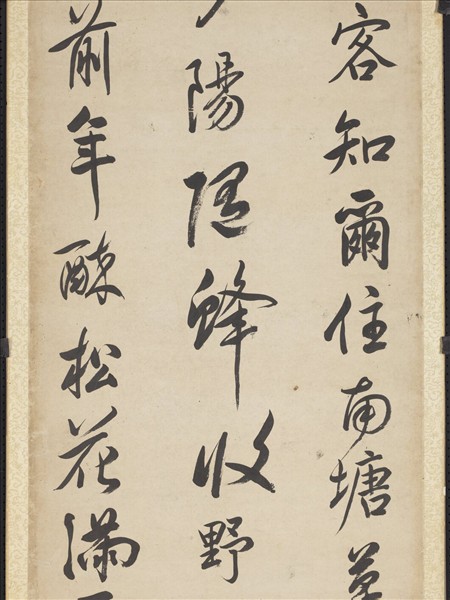 客知爾住南塘
陽隨蜂收野
前年酥松花滿